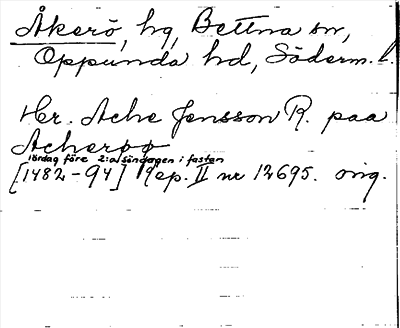 Åkerö, hg, Bettna sn,
Oppunda hd, Söderm. l.
Hr. Ache Jensson R. paa
Acherøø
lördag före 2:a söndagen i fastan
[1482-94] Rep. II nr 12695. orig.